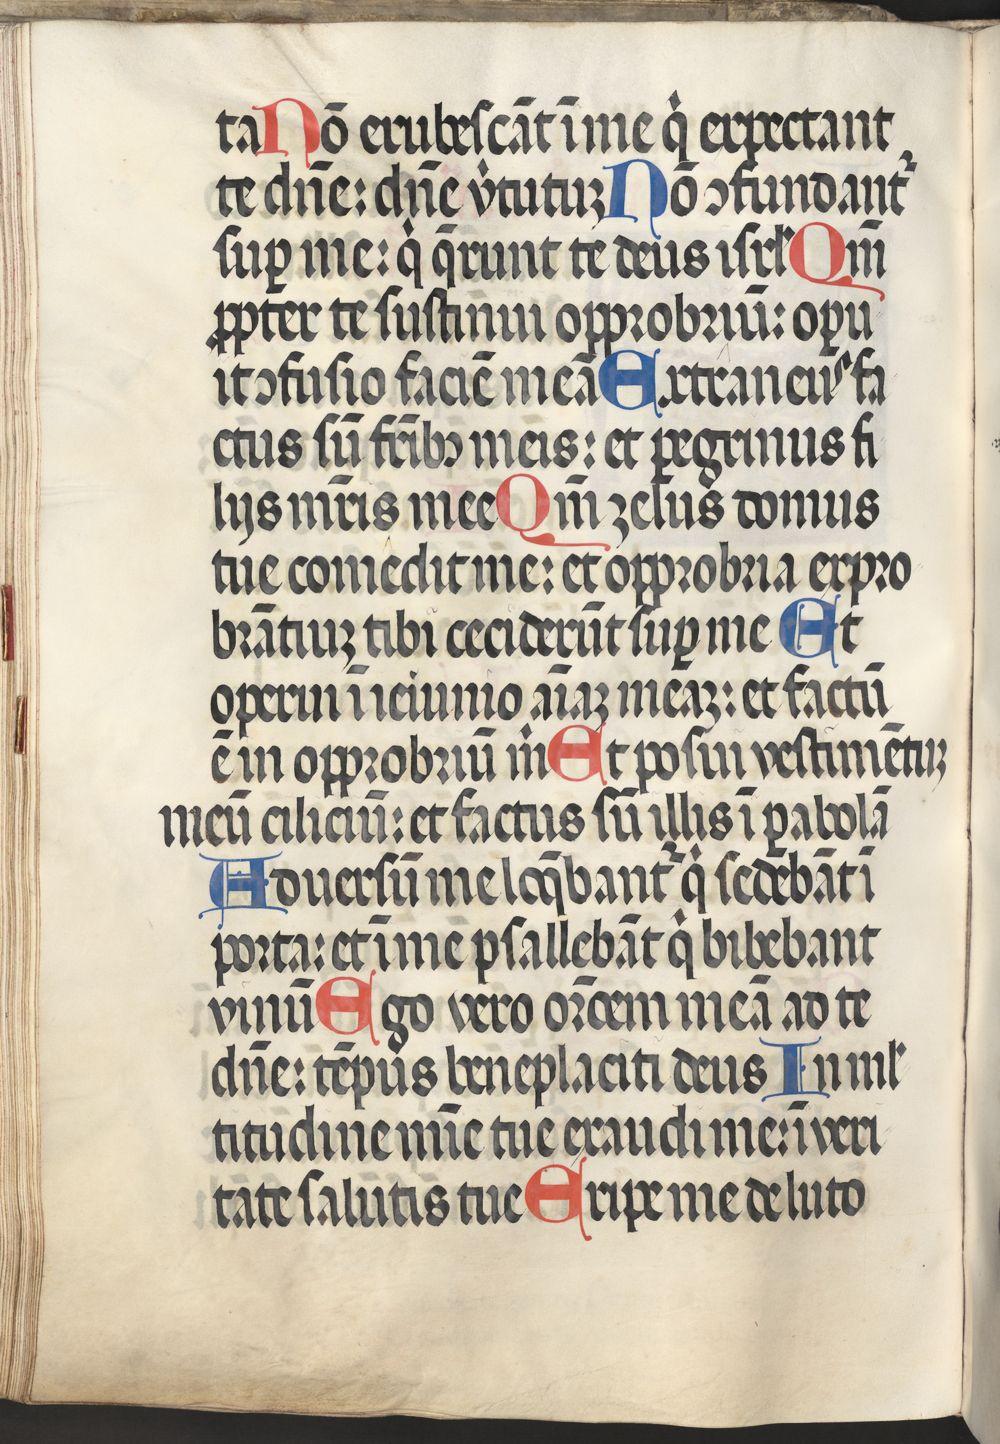 ta Nō erubescāt ī me qͥ expectant
te dn̄e: dn̄e vͥtutuꝫ Nō ↄfundant᷑
suꝑ me: qͥ q̄runt te deus isrl̓ Qm̄
ꝓpter te sustinui opprobriū: opu
it ↄfusio faciē meā Extraneus fa
ctus sū frībꝰ meis: et ꝑegrinus fi
lijs mr̄is mee Qm̄ zelus domus
tue comedit me: et opprobria expro
brātiuꝫ tibi ceciderūt suꝑ me Et
operui ī ieiunio aīaꝫ meaꝫ: et factū
ē in opprobriū mͥ Et posui vestimētuꝫ
meū ciliciū: et factus sū illis ī ꝑabolā
Aduersū me loq̄bant᷑ qͥ sedebāt ī
porta: et ī me psallebāt qͥ bibebant
vinū Ego vero or̄oem meā ad te
dn̄e: tēpus beneplaciti deus In ml̓
titudine mīe tue exaudi me: ī veri
tate salutis tue Eripe me de luto